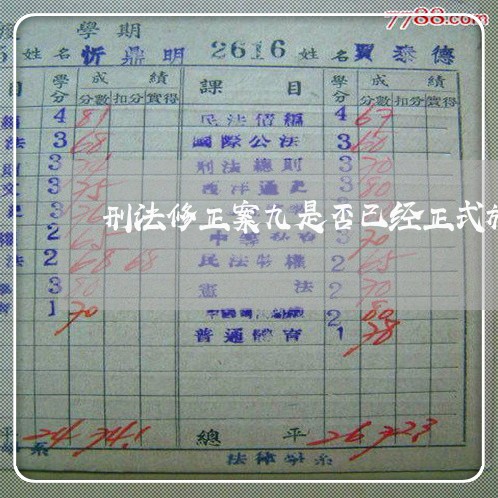 7788.com
學期
姓名 忻鼎明 2616 姓名 賈泰德
目 學分 成績 課目 學分 成績
分數 扣分 實得 分數 扣分 實得
4 81 民法債編 4 67
法 3 68 國際公法 3 60
3 刑法總則 3 70
3 75 西洋通史 3 80
刑法修正案九是否已经正式
2 65 3 70
法 2 68 68 民法物權 2 65
3 80 憲法 2 70
1 70 2 80
普通體育 1 78
平 24 74.1 總平 26 72.3
系 法律學系